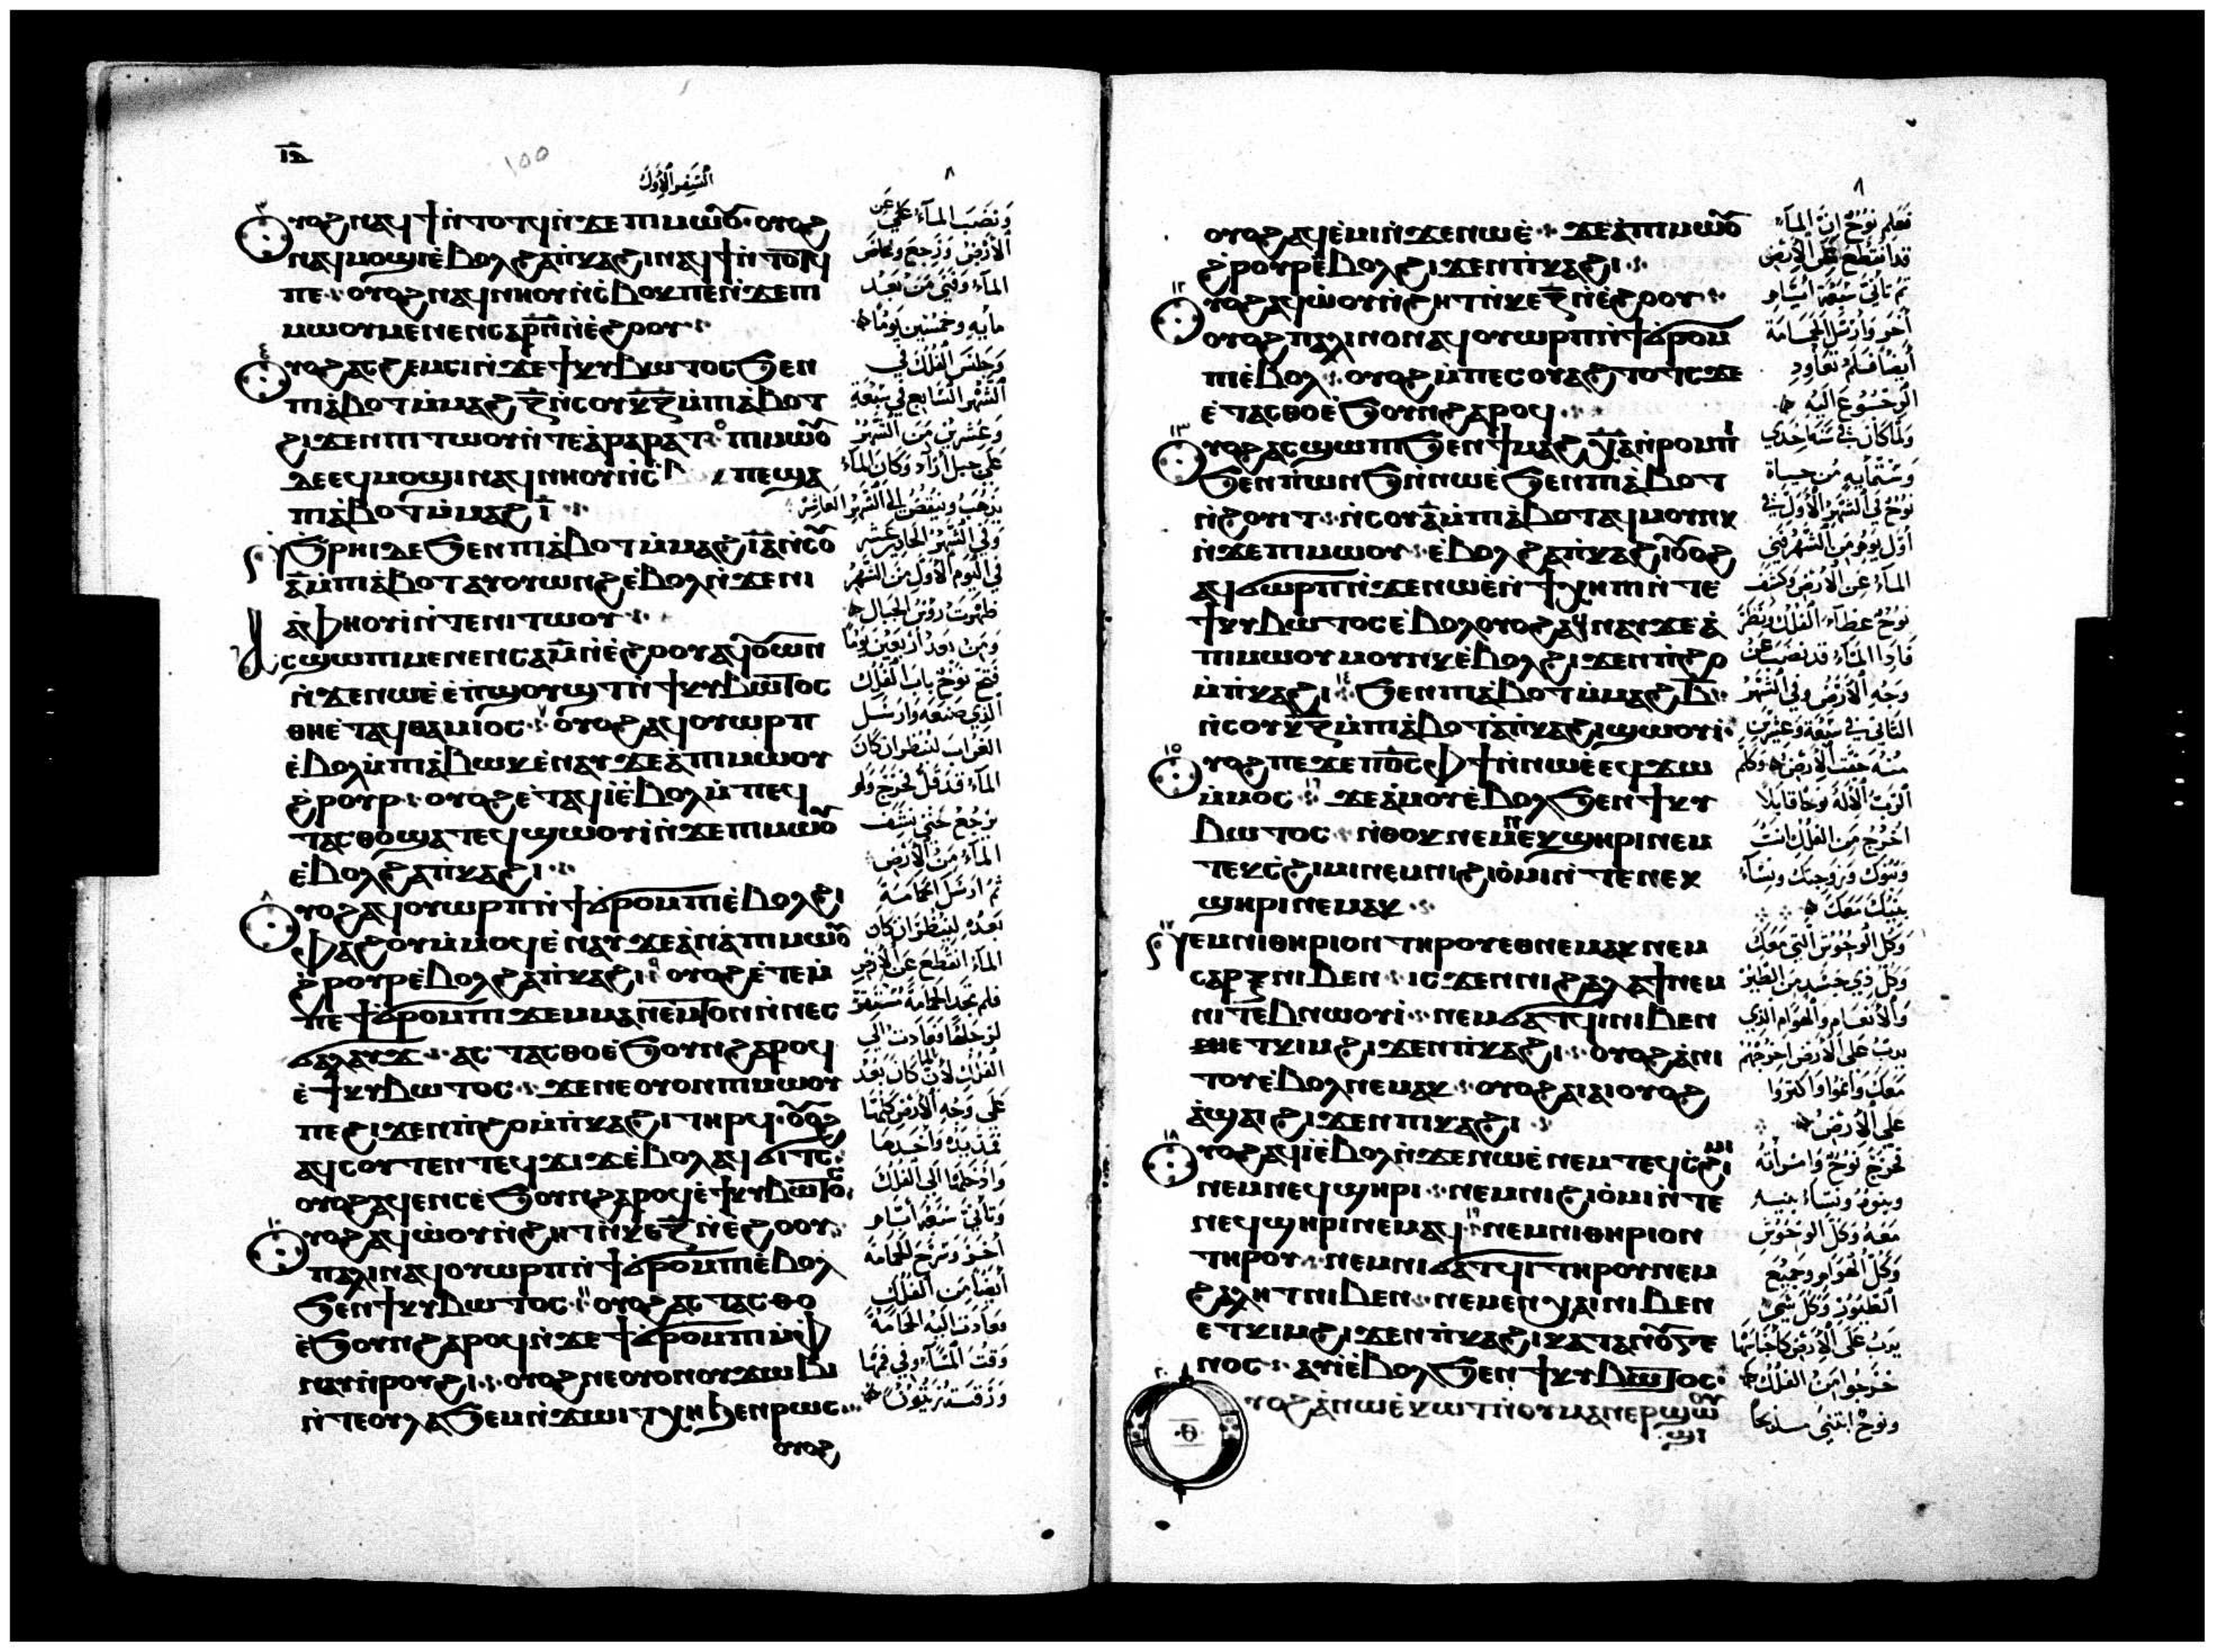 ⲓⲇ
100
السفر الاول
٨
ⲟⲩⲟϩ ⲛⲁϥϯ ⲛ̀ⲧⲟⲧϥ ⲛ̀ϫⲉ ⲡⲓⲙⲱⲟⲩ ⲟⲩⲟϩ
ⲛⲁϥⲙⲟϣⲓ ⲉ̀ⲃⲟⲗ ϩⲁ ⲡ̀ⲕⲁϩⲓ ⲛⲁϥϯ ⲛ̀ⲧⲟⲧϥ
ⲡⲉ ⲟⲩⲟϩ ⲛⲁϥⲛⲕⲟⲩⲛⲥ̀ⲃⲟⲕ ⲡⲉ ⲛ̀ϫⲉ ⲡⲓ
ⲙⲱⲟⲩ ⲙⲉⲛⲉⲛⲥⲁ ⲣ̅ⲛ̅ ⲛ̀ⲉ̀ϩⲟⲟⲩ
ⲟⲩⲟϩ ⲁⲥϩⲉⲙⲥⲓ ⲛ̀ϫⲉ ϯⲕⲩⲃⲱⲧⲟⲥ ϧⲉⲛ
ⲡⲓⲁ̀ⲃⲟⲧ ⲙ̀ⲙⲁϩ ⲍ̅ ⲛ̀ⲥⲟⲩ ⲕ̅ⲍ̅ ⲙ̀ⲡⲓⲁ̀ⲃⲟⲧ
ϩⲓϫⲉⲛ ⲡⲓⲧⲱⲟⲩ ⲛ̀ⲧⲉ ⲁ̀ⲣⲁⲣⲁⲧ ⲡⲓⲙⲱⲟⲩ
ⲇⲉ ⲉϥⲙⲟϣⲓ ⲛⲁϥⲛⲕⲟⲩⲛⲥ̀ ⲡⲉ ϣⲁ
ⲡⲓⲁ̀ⲃⲟⲧ ⲙ̀ⲙⲁϩ ⲓ̅
ϧⲣⲏⲓ ⲇⲉ ϧⲉⲛ ⲡⲓⲁ̀ⲃⲟⲧ ⲙ̀ⲙⲁϩ ⲓ̅ⲁ̅ ⲛ̀ⲥⲟⲩ
ⲁ̅ ⲙ̀ⲡⲓⲁ̀ⲃⲟⲧ ⲁⲩⲟⲩⲱⲛϩ ⲉ̀ⲃⲟⲗ ⲛ̀ϫⲉ ⲛⲓ
ⲁ̀ⲫⲏⲟⲩⲓ̀ ⲛ̀ⲧⲉ ⲛⲓⲧⲱⲟⲩ
ⲁⲥϣⲱⲡⲓ ⲙⲉⲛⲉⲛⲥⲁ ⲙ̅ ⲛ̀ⲉ̀ϩⲟⲟⲩ ⲁϥⲟⲩⲱⲛ
ⲛ̀ϫⲉ ⲛⲱⲉ̀ ⲉ̀ⲡ̀ϣⲟⲩϣⲧ ⲛ̀ϯⲕⲩⲃⲱⲧⲟⲥ
ⲑⲏⲉ̀ⲧⲁϥⲑⲁⲙⲓⲟⲥ ⲟⲩⲟϩ ⲁϥⲟⲩⲱⲣⲡ
ⲉ̀ⲃⲟⲗ ⲙ̀ⲡⲓⲁ̀ⲃⲱⲕ ⲉ̀ⲛⲁⲩ ϫⲉ ⲁ̀ⲡⲓⲙⲱⲟⲩ
ϩ̀ⲣⲟⲩⲣ ⲟⲩⲟϩ ⲉ̀ⲧⲁϥⲓ̀ ⲉ̀ⲃⲟⲗ ⲙ̀ⲡⲉϥ
ⲧⲁⲥⲑⲟ ϣⲁⲧⲉϥϣⲱⲟⲩⲓ̀ ⲛ̀ϫⲉ ⲡⲓⲙⲱⲟⲩ
ⲉ̀ⲃⲟⲗ ϩⲁ ⲡ̀ⲕⲁϩⲓ
ⲟⲩⲟϩ ⲁϥⲟⲩⲱⲣⲡ ⲛ̀ϯϭⲣⲟⲙⲡⲓ ⲉ̀ⲃⲟⲗ ϩⲓ
ⲫⲁϩⲟⲩ ⲙ̀ⲙⲟϥ ⲉ̀ⲛⲁⲩ ϫⲉ ⲁ̀ⲛ ⲁ̀ⲡⲓⲙⲱⲟⲩ
ϩ̀ⲣⲟⲩⲣ ⲉ̀ⲃⲟⲗ ϩⲁ ⲡ̀ⲕⲁϩⲓ ⲟⲩⲟϩ ⲉ̀ⲧⲉⲙ̀
ⲡⲉ ϯϭⲣⲟⲙⲡⲓ ϫⲉⲙ ⲙⲁⲛⲉⲙⲧⲟⲛ ⲛ̀ⲛⲉⲥ
ϭⲁⲗⲁⲩϫ ⲁⲥⲧⲁⲥⲑⲟ ⲉ̀ϧⲟⲩⲛ ϩⲁⲣⲟϥ
ⲉ̀ϯⲕⲩⲃⲱⲧⲟⲥ ϫⲉ ⲛⲉ ⲟⲩⲟⲛ ⲡⲓⲙⲱⲟⲩ
ⲡⲉ ϩⲓϫⲉⲛ ⲡ̀ϩⲟ ⲙ̀ⲡ̀ⲕⲁϩⲓ ⲧⲏⲣϥ ⲟⲩⲟϩ
ⲁϥⲥⲟⲩⲧⲉⲛ ⲧⲉϥϫⲓϫ ⲉ̀ⲃⲟⲗ ⲁϥϭⲓⲧⲥ
ⲟⲩⲟϩ ⲁϥⲉⲛⲥ ⲉ̀ϧⲟⲩⲛ ϩⲁⲣⲟϥ ⲉ̀ϯⲕⲩⲃⲱⲧⲟⲥ
ⲟⲩⲟϩ ⲁϥⲱ̀ⲟⲩⲛ̀ϩⲏⲧ ⲛ̀ⲕⲉ ⲍ̅ ⲛ̀ⲉ̀ϩⲟⲟⲩ
ⲡⲁⲗⲓⲛ ⲁϥⲟⲩⲱⲣⲡ ⲛ̀ϯϭⲣⲟⲙⲡⲓ ⲉ̀ⲃⲟⲗ
ϧⲉⲛ ϯⲕⲩⲃⲱⲧⲟⲥ ⲟⲩⲟϩ ⲁⲥⲧⲁⲥⲑⲟ
ⲉ̀ϧⲟⲩⲛ ϩⲁⲣⲟϥ ⲛ̀ϫⲉ ϯϭⲣⲟⲙⲡⲓ ⲙ̀ⲫ
ⲛⲁⲩ ⲛ̀ⲣⲟⲩϩⲓ ⲟⲩⲟϩ ⲛⲉ ⲟⲩⲟⲛ ⲟⲩϫⲱⲃⲓ
ⲛ̀ⲧⲉ ⲟⲩⲗⲁϧⲉⲙ ⲛ̀ϫⲱⲓⲧ ϧⲉⲛ ⲣⲱⲥ
ⲟⲩⲟϩ
ونضب المآء على عن
الارض ورجع وغاض
المآء وفنى من بعد
مايه وخمسين يوما
وجلس الفلك في
الشهر السابع في سبعة
وعشرين من الشهر
على جبل اراراد وكان المآء
يذهب وينقص الى الشهر العاشر
وفي الشهر الحادي عشر
في اليوم الاول من الشهر
ظهرت رؤس الجبال
ومن بعد اربعين يوما
فتح نوح باب الفلك
الذي صنعه وارسل
الغراب لينظر ان كان
المآء قد قل فخرج ولم
يرجع حتى نشف
المآء من الارض
ثم ارسل الحمامة
بعده لينظر ان كان
المآء انقطع عن الارض
فلم تجد الحمامة مستقر
لرجليها فعادت الى
الفلك لان المآء كان بعد
على وجه الارض كلها
فمد يده واخدها
وادخلها الى الفلك
وتانى سبعة ايام
اخر وسرح الحمامة
ايضا من الفلك
فعادت اليه الحمامة
وقت المسآء وفي فمها
ورقت زيتون
٨
ⲟⲩⲟϩ ⲁϥⲉ̀ⲙⲓ ⲛ̀ϫⲉ ⲛⲱⲉ̀ ϫⲉ ⲁ̀ⲡⲓⲙⲱⲟⲩ
ϩ̀ⲣⲟⲩⲣ ⲉ̀ⲃⲟⲗ ϩⲓϫⲉⲛ ⲡ̀ⲕⲁϩⲓ
ⲟⲩⲟϩ ⲁϥⲱ̀ⲟⲩⲛ̀ϩⲏⲧ ⲛ̀ⲕⲉ ⲍ̅ ⲛ̀ⲉ̀ϩⲟⲟⲩ
ⲟⲩⲟϩ ⲡⲁⲗⲓⲛ ⲟⲛ ⲁϥⲟⲩⲱⲣⲡ ⲛ̀ϯϭⲣⲟⲙ
ⲡⲓ ⲉ̀ⲃⲟⲗ ⲟⲩⲟϩ ⲙ̀ⲡⲉⲥⲟⲩⲁϩⲧⲟⲧⲥ ϫⲉ
ⲉ̀ⲧⲁⲥⲑⲟ ⲉ̀ϧⲟⲩⲛ ϩⲁⲣⲟϥ
ⲟⲩⲟϩ ⲁⲥϣⲱⲡⲓ ϧⲉⲛ ϯⲙⲁϩ ⲭ̅ⲁ̅ ⲛ̀ⲣⲟⲙⲡⲓ
ϧⲉⲛ ⲡ̀ⲱⲛϧ ⲛ̀ⲛⲱⲉ̀ ϧⲉⲛ ⲡⲓⲁ̀ⲃⲟⲧ
ⲛ̀ϩⲟⲩⲓⲧ ⲛ̀ⲥⲟⲩ ⲁ̅ ⲙ̀ⲡⲓⲁ̀ⲃⲟⲧ ⲁϥⲙⲟⲩⲛⲕ
ⲛ̀ϫⲉ ⲡⲓⲙⲱⲟⲩ ⲉ̀ⲃⲟⲗ ϩⲁ ⲡ̀ⲕⲁϩⲓ ⲟⲩⲟϩ
ⲁϥϭⲱⲣⲡ ⲛ̀ϫⲉ ⲛⲱⲉ̀ ⲛ̀ϯⲭⲏⲡⲓ ⲛ̀ⲧⲉ
ϯⲕⲩⲃⲱⲧⲟⲥ ⲉ̀ⲃⲟⲗ ⲟⲩⲟϩ ⲁϥⲛⲁⲩ ϫⲉ ⲁ̀
ⲡⲓⲙⲱⲟⲩ ⲙⲟⲩⲛⲕ ⲉ̀ⲃⲟⲗ ϩⲓϫⲉⲛ ⲡ̀ϩⲟ
ⲙ̀ⲡ̀ⲕⲁϩⲓ ϧⲉⲛ ⲡⲓⲁ̀ⲃⲟⲧ ⲙ̀ⲙⲁϩ ⲃ̅
ⲛ̀ⲥⲟⲩ ⲕ̅ⲍ̅ ⲙ̀ⲡⲓⲁ̀ⲃⲟⲧ ⲁ̀ⲡ̀ⲕⲁϩⲓ ϣⲱⲟⲩⲓ̀
ⲟⲩⲟϩ ⲡⲉϫⲉ ⲡ⳪ ⲫϯ ⲛ̀ⲛⲱⲉ̀ ⲉϥϫⲱ
ⲙ̀ⲙⲟⲥ ϫⲉ ⲁ̀ⲙⲟⲩ ⲉ̀ⲃⲟⲗ ϧⲉⲛ ϯⲕⲩ
ⲃⲱⲧⲟⲥ ⲛ̀ⲑⲟⲕ ⲛⲉⲙ ⲛⲉⲕϣⲏⲣⲓ ⲛⲉⲙ
ⲧⲉⲕⲥ̀ϩⲓⲙⲓ ⲛⲉⲙ ⲛⲓϩⲓⲟ̀ⲙⲓ ⲛ̀ⲧⲉ ⲛⲉⲕ
ϣⲏⲣⲓ ⲛⲉⲙⲁⲕ
ⲛⲉⲙ ⲛⲓⲑⲏⲣⲓⲟⲛ ⲧⲏⲣⲟⲩ ⲉⲑⲛⲉⲙⲁⲕ ⲛⲉⲙ
ⲥⲁⲣⲝ ⲛⲓⲃⲉⲛ ⲓⲥϫⲉⲛ ⲛⲓϩⲁⲗⲁϯ ⲛⲉⲙ
ⲛⲓⲧⲉⲃⲛⲱⲟⲩⲓ̀ ⲛⲉⲙ ϭⲁⲧϥⲓ ⲛⲓⲃⲉⲛ
ⲉⲧⲕⲓⲙ ϩⲓϫⲉⲛ ⲡ̀ⲕⲁϩⲓ ⲟⲩⲟϩ ⲁ̀ⲛⲓ
ⲧⲟⲩ ⲉ̀ⲃⲟⲗ ⲛⲉⲙⲁⲕ ⲟⲩⲟϩ ⲁⲓⲁⲓ ⲟⲩⲟϩ
ⲁ̀ϣⲁⲓ ϩⲓϫⲉⲛ ⲡⲓⲕⲁϩⲓ
ⲟⲩⲟϩ ⲁϥⲓ̀ ⲉ̀ⲃⲟⲗ ⲛ̀ϫⲉ ⲛⲱⲉ̀ ⲛⲉⲙ ⲧⲉϥⲥ̀ϩⲓⲙⲓ
ⲛⲉⲙ ⲛⲉϥϣⲏⲣⲓ ⲛⲉⲙ ⲛⲓϩⲓⲟ̀ⲙⲓ ⲛ̀ⲧⲉ
ⲛⲉϥϣⲏⲣⲓ ⲛⲉⲙⲁϥ ⲛⲉⲙ ⲛⲓⲑⲏⲣⲓⲟⲛ
ⲧⲏⲣⲟⲩ ⲛⲉⲙ ⲛⲓϭⲁⲧϥⲓ ⲧⲏⲣⲟⲩ ⲛⲉⲙ
ϩⲁⲗⲏⲧ ⲛⲓⲃⲉⲛ ⲛⲉⲙ ⲉⲛⲭⲁⲓ ⲛⲓⲃⲉⲛ
ⲉⲧⲕⲓⲙ ϩⲓϫⲉⲛ ⲡ̀ⲕⲁϩⲓ ⲕⲁⲧⲁ ⲛⲟⲩⲅⲉ
ⲛⲟⲥ ⲁⲩⲓ̀ ⲉ̀ⲃⲟⲗ ϧⲉⲛ ϯⲕⲩⲃⲱⲧⲟⲥ
ⲟⲩⲟϩ ⲁ̀ⲛⲱⲉ̀ ⲕⲱⲧ ⲛ̀ⲟⲩⲙⲁⲛⲉⲣϣⲱⲟⲩ
ϣⲓ
ⲑ
فعلم نوح ان المآء
قد انقطع عن الارض
ثم تانى سبعة ايام
اخر وارسل الحمامة
ايضا فلم تعاود
الرجوع اليه
ولما كان في سنة احدى
وستمايه من حياة
نوح في الشهر الاول في
اول يوم من الشهر فني
المآء عن الارض وكشف
نوح غطآء الفلك ونظر
فاذا المآء قد نضب عن
وجه الارض وفي الشهر
الثاني في سبعة وعشرين
منه جفت الارض وكلم
الرب الاله نوحا قايلا
اخرج من الفلك انت
وبنوك وزوجتك ونسآء
بنيك معك
وكل الوحوش التي معك
وكل ذي جسد من الطير
والانعام والهوام الذي
يدب على الارض اخرجهم
معك وانموا واكثروا
على الارض
فخرج نوح وامراته
وبنوه ونسآء بنيه
معه وكل الوحوش
وكل الهوام وجميع
الطيور وكل شي
يدب على الارض كاجناسها
خرجوا من الفلك
ونوح ابتنى مذبحا